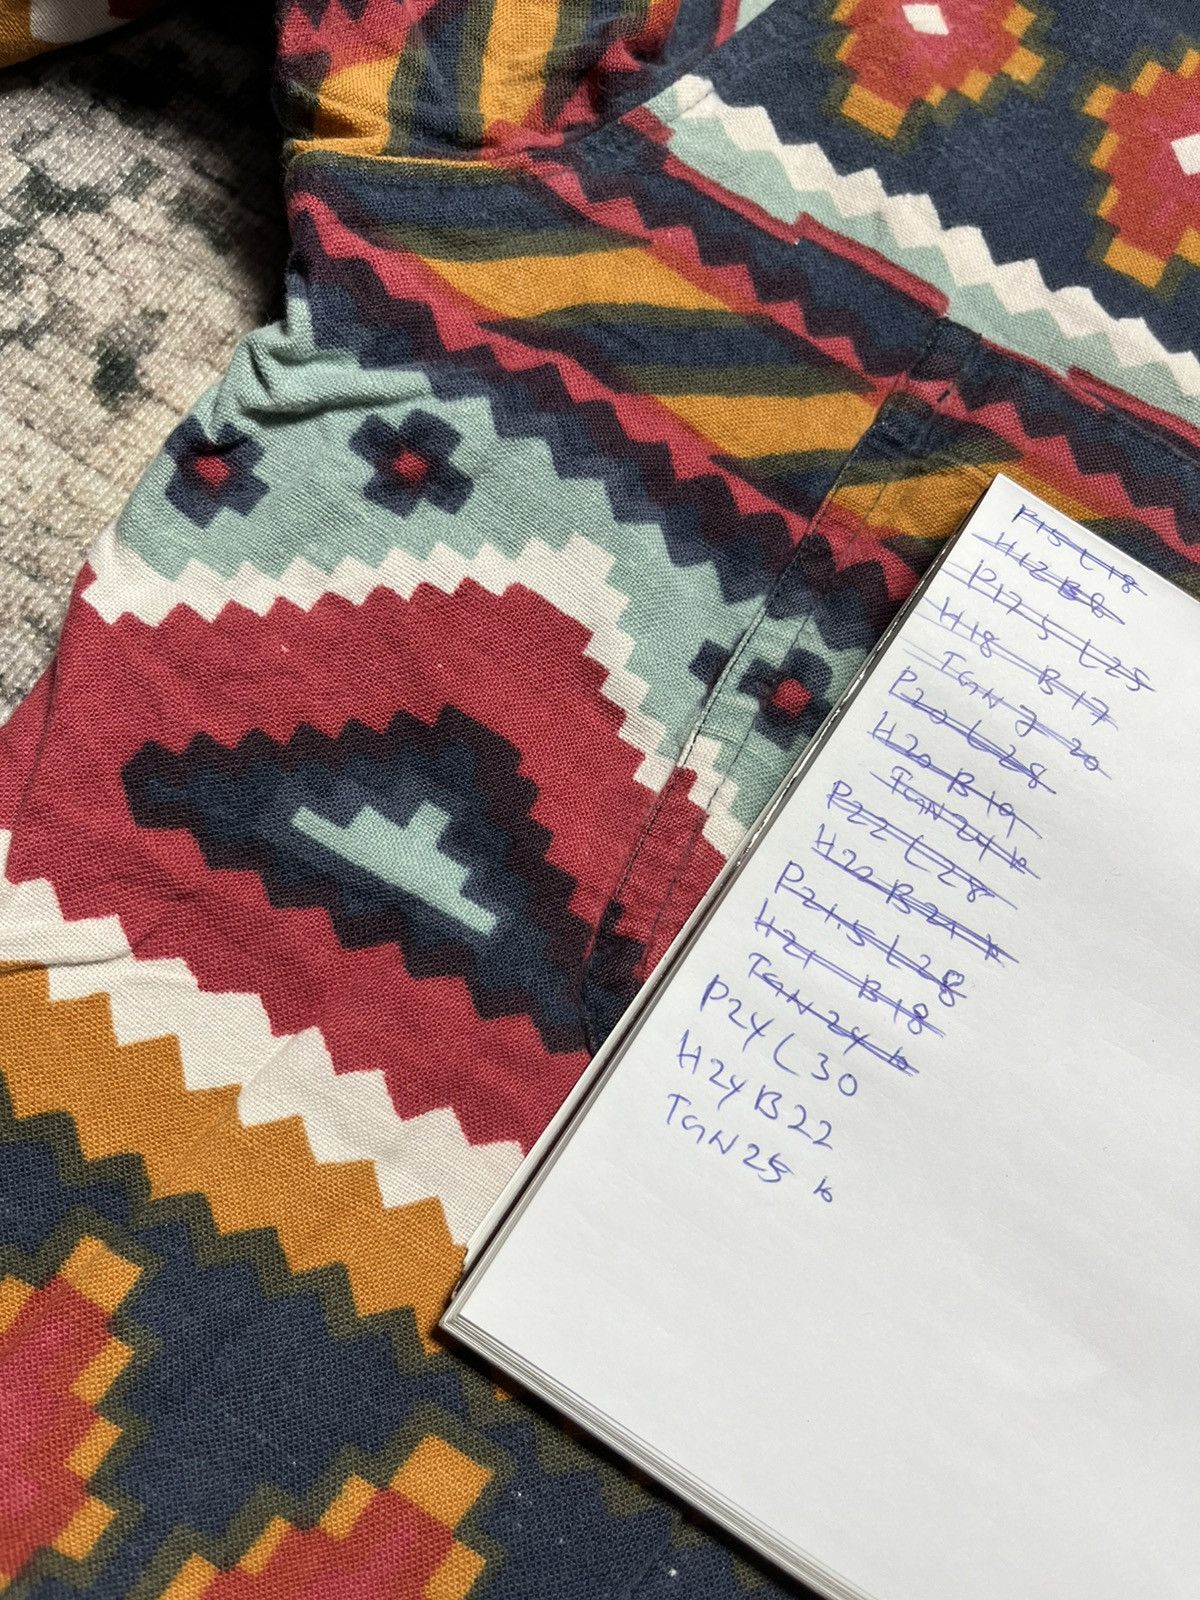 P15 L18
H12 B8
P17 5 L25
H18 B17
TGN 2 20
P20 L28
H20 B19
TGN 24 k
P22 L28
H22 B21 k
P21.5 L28
H21 B18
TGN 24 k
P24 L30
H24 B22
TGN 25 k